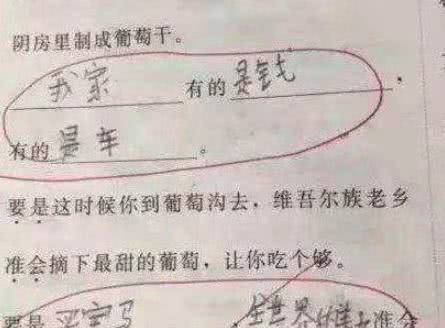 阴房里制成葡萄干。
我家有的是钱，
有的是车。
要是这时候你到葡萄沟去，维吾尔族老乡
准会摘下最甜的葡萄，让你吃个够。
要是买宝马，全世界的准会